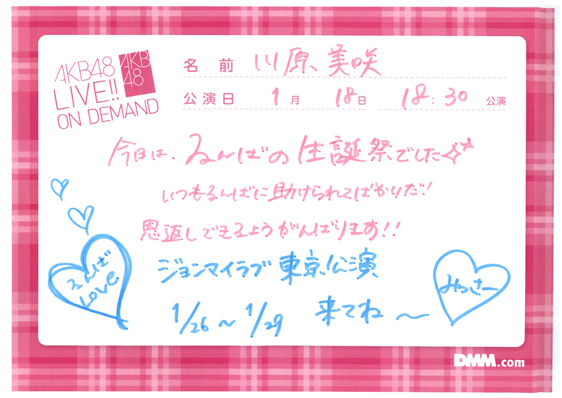 AKB48
LIVE!!
ON DEMAND
AKB
48
名前 川原美咲
公演日 1月 18日 18:30 公演
今日は、るんばの生誕祭でした
いつもるんばに助けられてばかりだ!
恩返しできるようがんばります!!
ジョンマイラブ東京公演
1/26～1/29 来てね〜
るんば
LOVE
みっさー
DMM.com